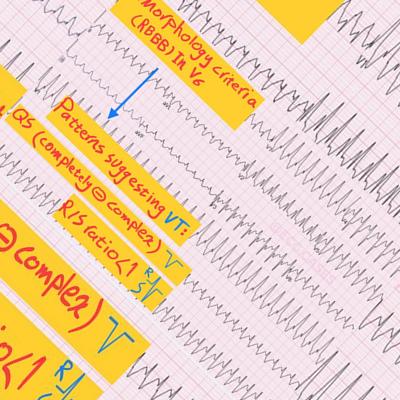 morphology criteria
(RBBB) In V6
Patterns suggesting VT:
QS (completly ⊖ complex)
R/S ratio<1 R
S
⊖ complex)
io<1 R